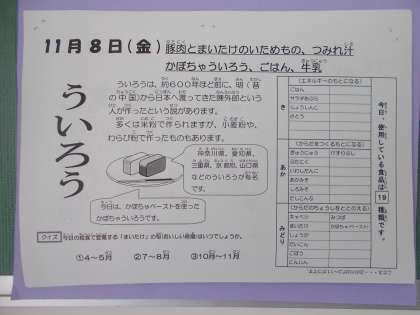 11月8日(金) 豚肉とまいたけのいためもの、つみれ汁
かぼちゃういろう、ごはん、牛乳
ういろう
ういろうは、約600年ほど前に、明(昔
の中国)から日本へ渡ってきた陳外郎という
人が作ったという説があります。
多くは米粉で作られますが、小麦粉や、
わらび粉で作ったものもあります。
神奈川県、愛知県、
三重県、京都府、山口県
などのういろうが有名
です。
今日は、かぼちゃペーストを使った
かぼちゃういろうです。
クイズ 今日の給食で登場する「まいたけ」の旬(おいしい時期)はいつでしょうか。
①4~5月 ②7~8月 ③10月~11月
今日、使用している食品は19種類です。
き
(エネルギーのもとになる)
ごはん
さとう
あか
(からだをつくるもとになる)
ぎゅうにゅう
ぶたにく
みどり
(からだのちょうしをととのえる)
キャベツ みつば
まいたけ かぼちゃペースト
しょうが
だいこん
ごぼう
にんじん